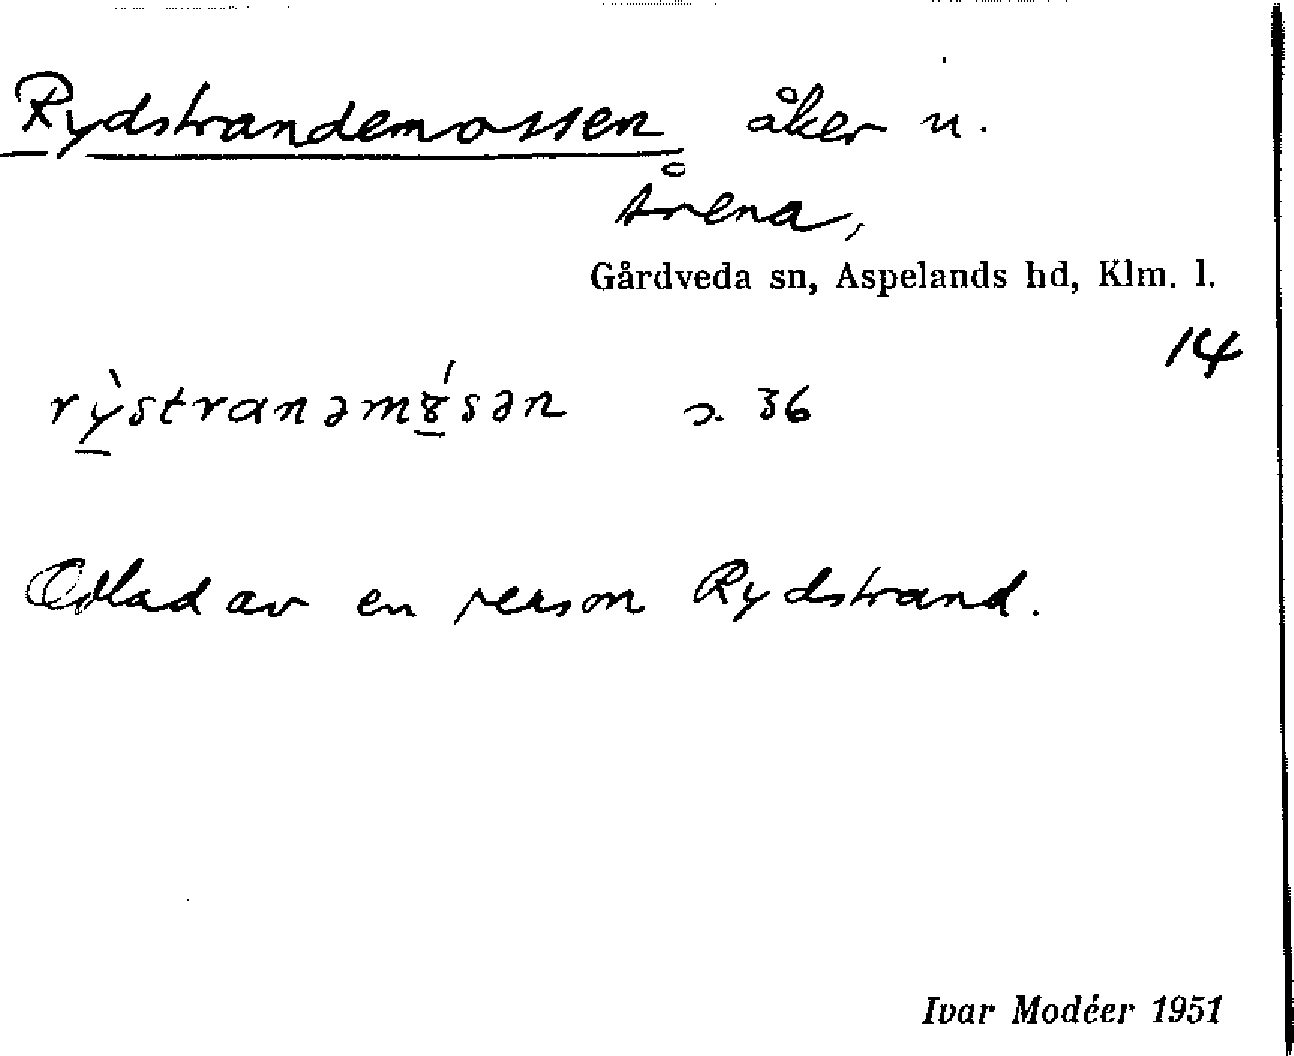 Rydstrandemossen åker u.
Årena,
Gårdveda sn, Aspelands hd, Klm. l.
14
rỳstranəmɣ́sən s. 36
Odlad av en person Rydstrand.
Ivar Modéer 1951